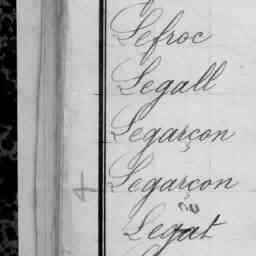 Lefroc
Legall
Legarçon
Legarçon
Legat